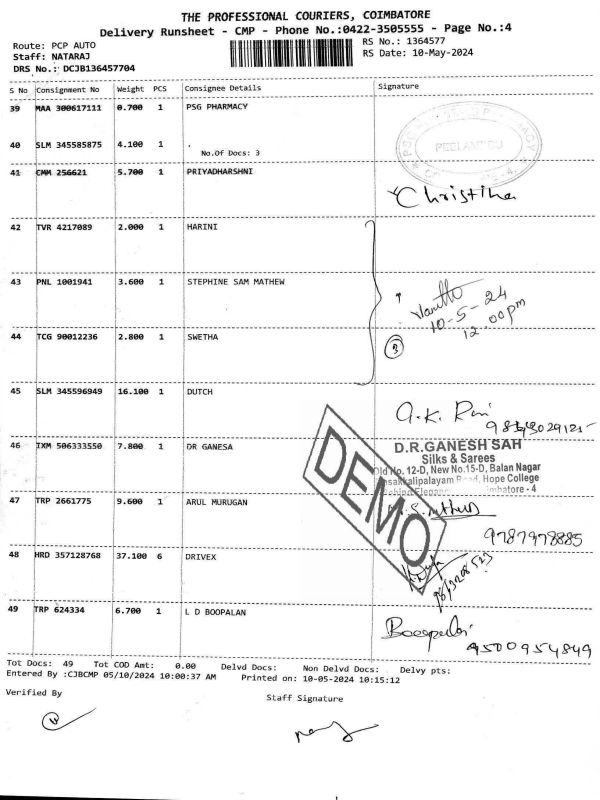 THE PROFESSIONAL COURIERS, COIMBATORE
Delivery Runsheet - CMP - Phone No.:0422-3505555 - Page No.:4
Route: PCP AUTO
RS No.: 1364577
Staff: NATARAJ
RS Date: 10-May-2024
DRS No.: DCJB136457704
S No Consignment No Weight PCS Consignee Details Signature
39 MAA 300617111 0.700 1 PSG PHARMACY
PEELAMEDU
40 SLM 345585875 4.100 1 .
No.Of Docs: 3
41 CMM 256621 5.700 1 PRIYADHARSHNI
Christina
42 TVR 4217089 2.000 1 HARINI
43 PNL 1001941 3.600 1 STEPHINE SAM MATHEW
10-5-24
12.00pm
44 TCG 90012236 2.800 1 SWETHA
3
45 SLM 345596949 16.100 1 DUTCH
46 IXM 506333550 7.800 1 DR GANESA
D.R.GANESH SAH
Silks & Sarees
Old No. 12-D, New No.15-D, Balan Nagar
Hope College
- 4
DEMO
47 TRP 2661775 9.600 1 ARUL MURUGAN
9787978885
48 HRD 357128768 37.100 6 DRIVEX
49 TRP 624334 6.700 1 L D BOOPALAN
Boopalan
9500954849
Tot Docs: 49 Tot COD Amt: 0.00 Delvd Docs: Non Delvd Docs: Delvy pts:
Entered By :CJBCMP 05/10/2024 10:00:37 AM Printed on: 10-05-2024 10:15:12
Verified By
Staff Signature